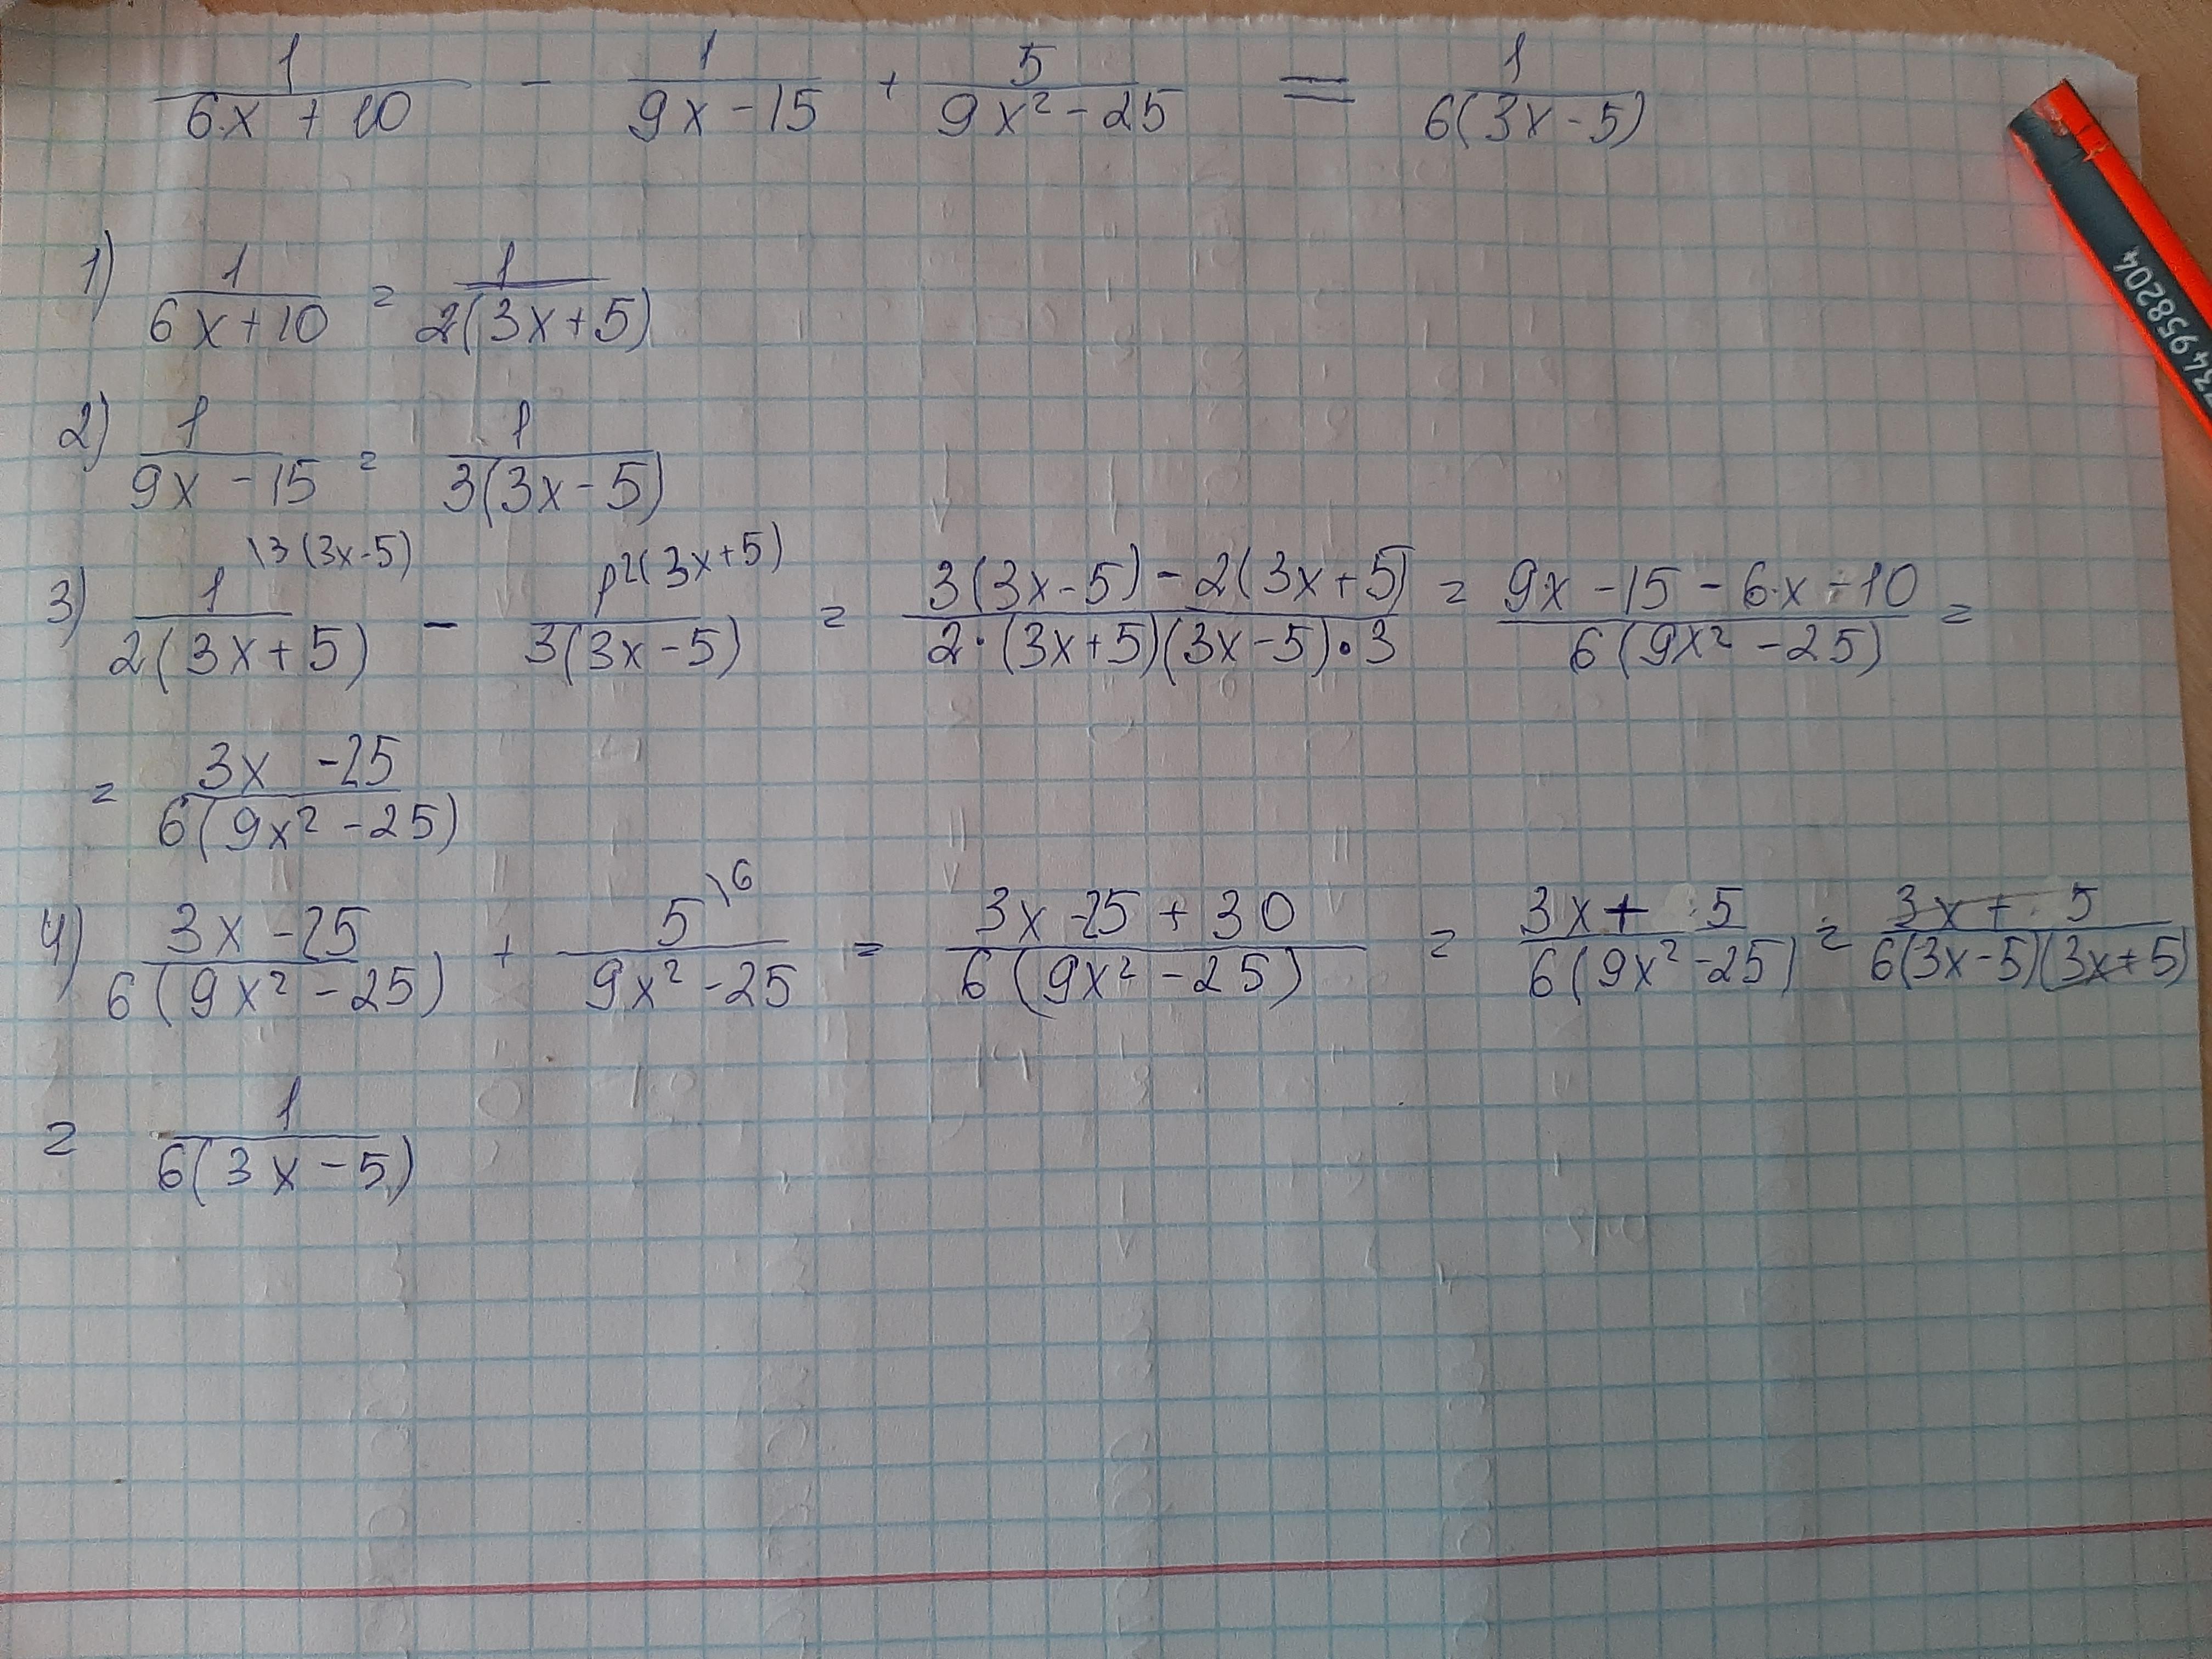 1/(6x + 10) - 1/(9x - 15) + 5/(9x² - 25) = 1/(6(3x - 5))
1) 1/(6x + 10) = 1/(2(3x + 5))
2) 1/(9x - 15) = 1/(3(3x - 5))
3) 1\3(3x - 5)/(2(3x + 5)) - 1\2(3x + 5)/(3(3x - 5)) = (3(3x - 5) - 2(3x + 5))/(2·(3x + 5)(3x - 5)·3) = (9x - 15 - 6x - 10)/(6(9x² - 25)) =
= (3x - 25)/(6(9x² - 25))
4) (3x - 25)/(6(9x² - 25)) + 5\6/(9x² - 25) = (3x - 25 + 30)/(6(9x² - 25)) = (3x + 5)/(6(9x² - 25)) = (3x + 5)/(6(3x - 5)(3x + 5))
= 1/(6(3x - 5))
734958204